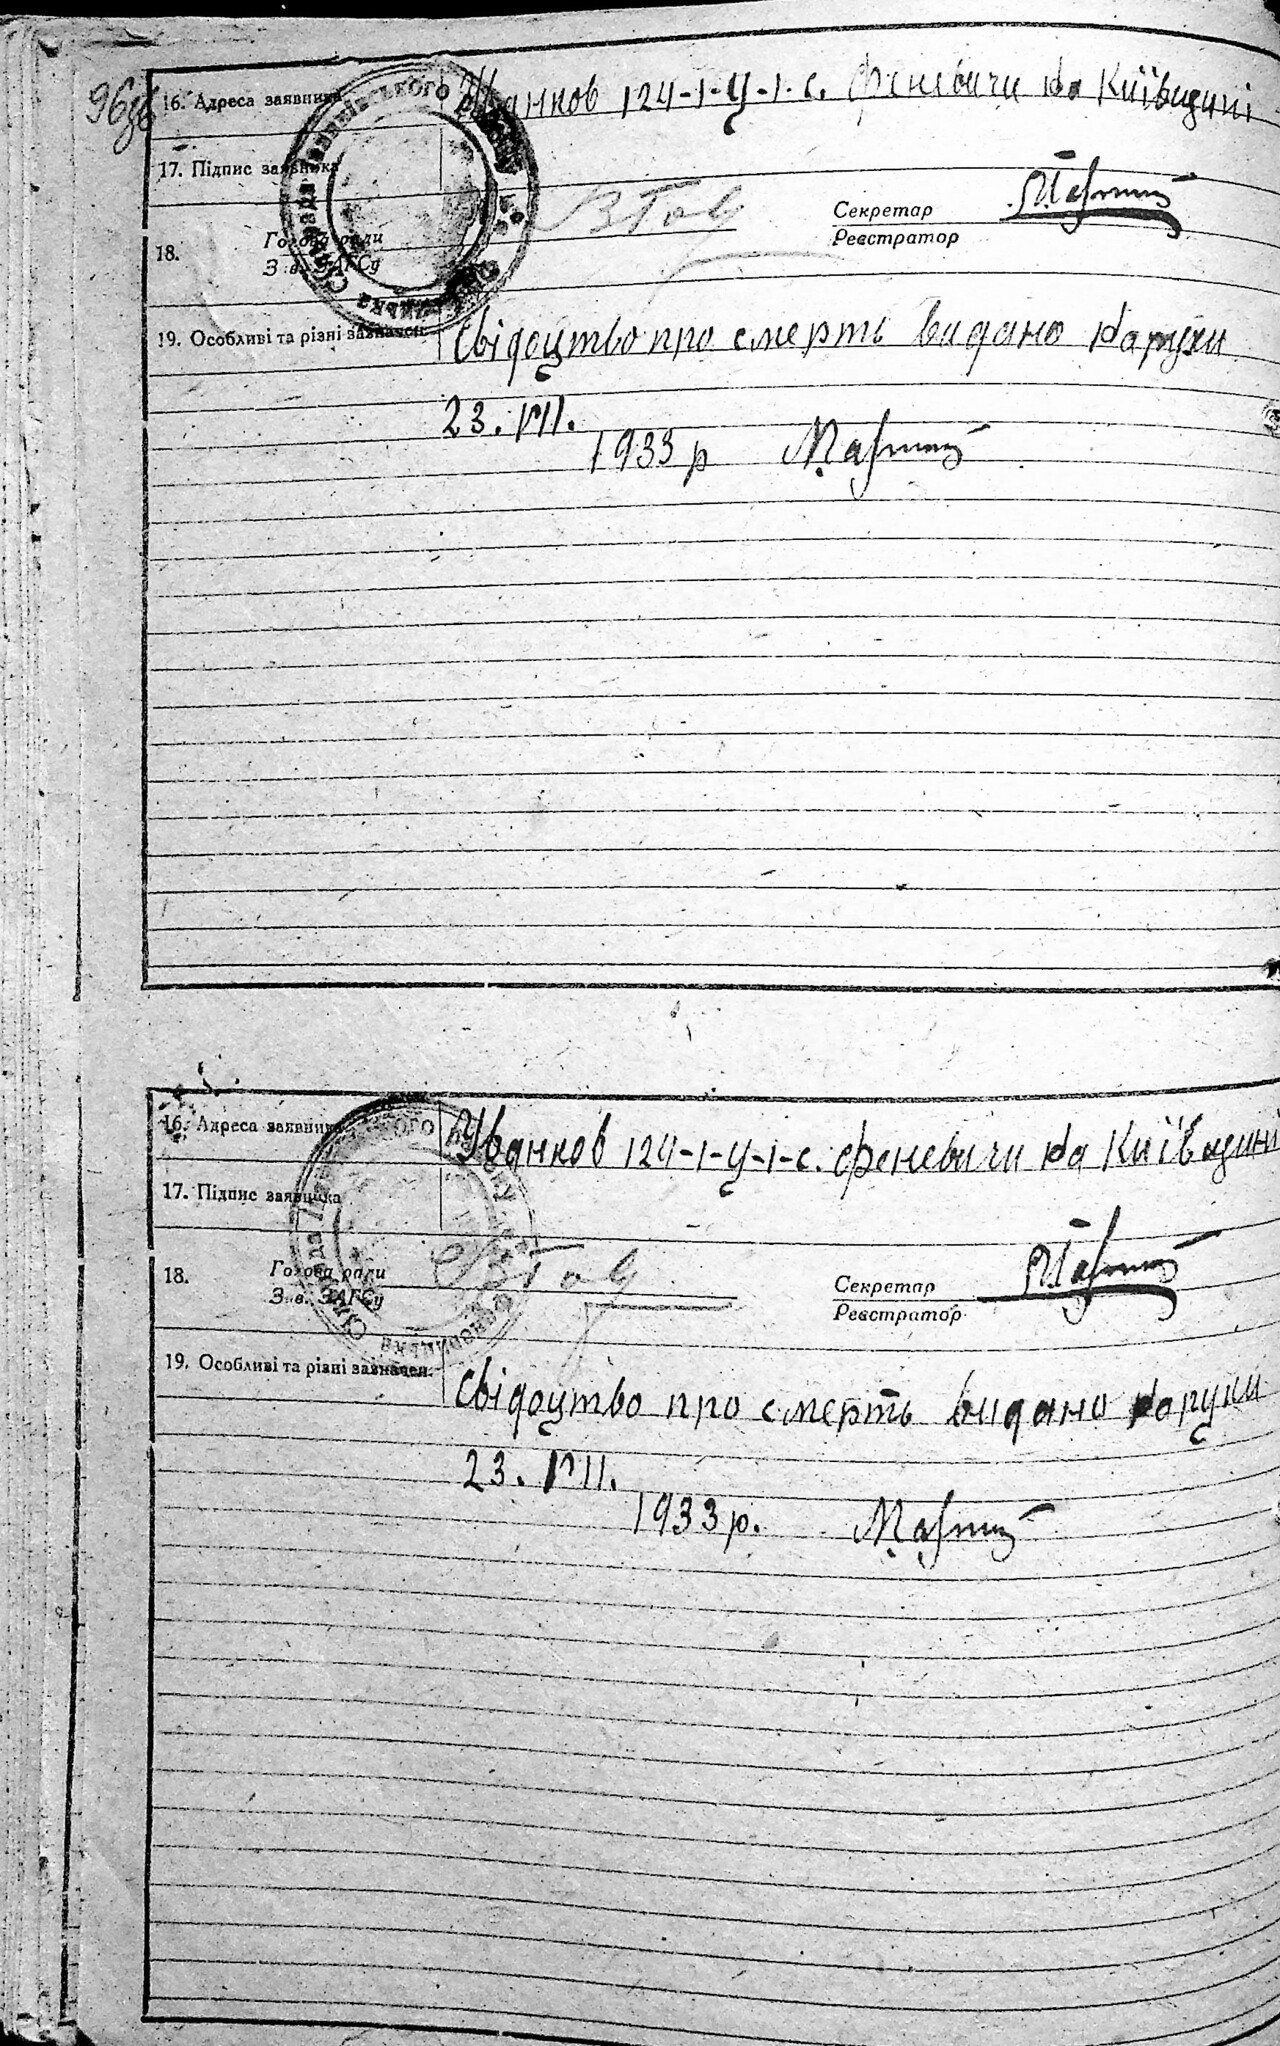 96зв
16. Адреса заявника Іванков 124-1-У-1-с. Феневичи на Київщині
17. Підпис заявника
18. Голова ради
Зав. ЗАГСу
Секретар
Реєстратор
19. Особливі та різні зазначен. Свідоцтво про смерть видано на руки
23. VII.
1933 р
16. Адреса заявника Іванков 124-1-У-1-с. Феневичи на Київщині
17. Підпис заявника
18. Голова ради
Зав. ЗАГСу
Секретар
Реєстратор
19. Особливі та різні зазначен. Свідоцтво про смерть видано на руки
23. VII.
1933 р.